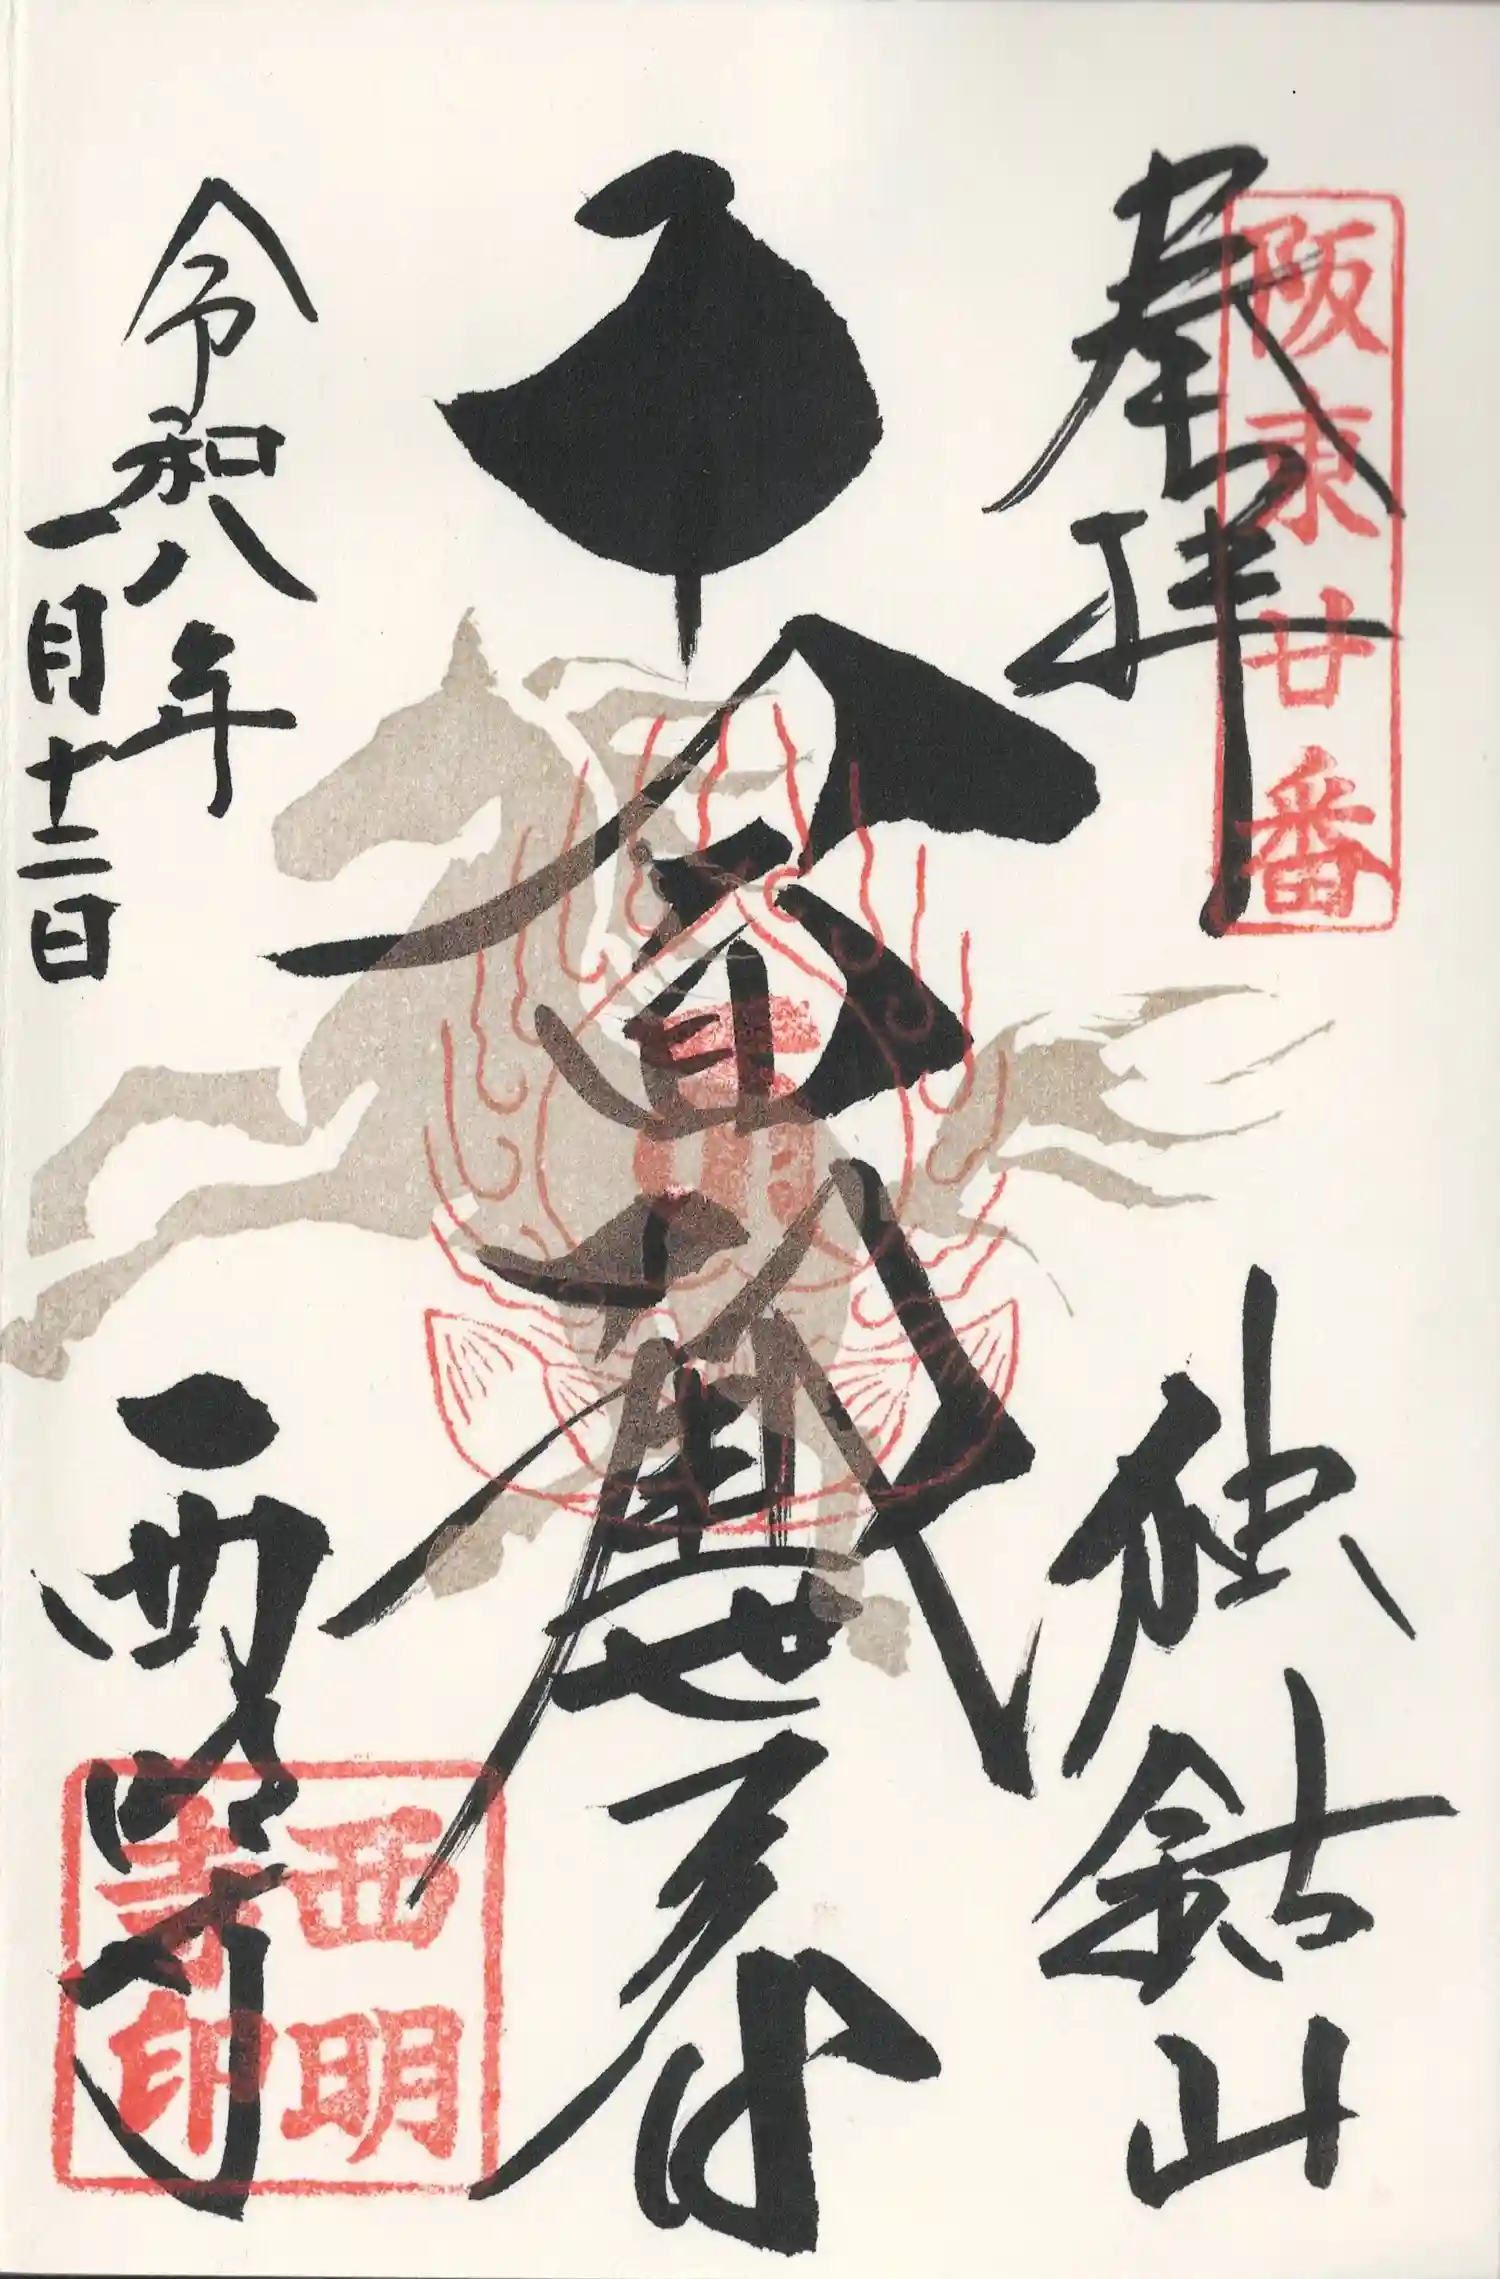 阪東廿番
奉拝
独鈷山
十一面観世音
令和八年
一月十二日
西明寺
西明
寺印